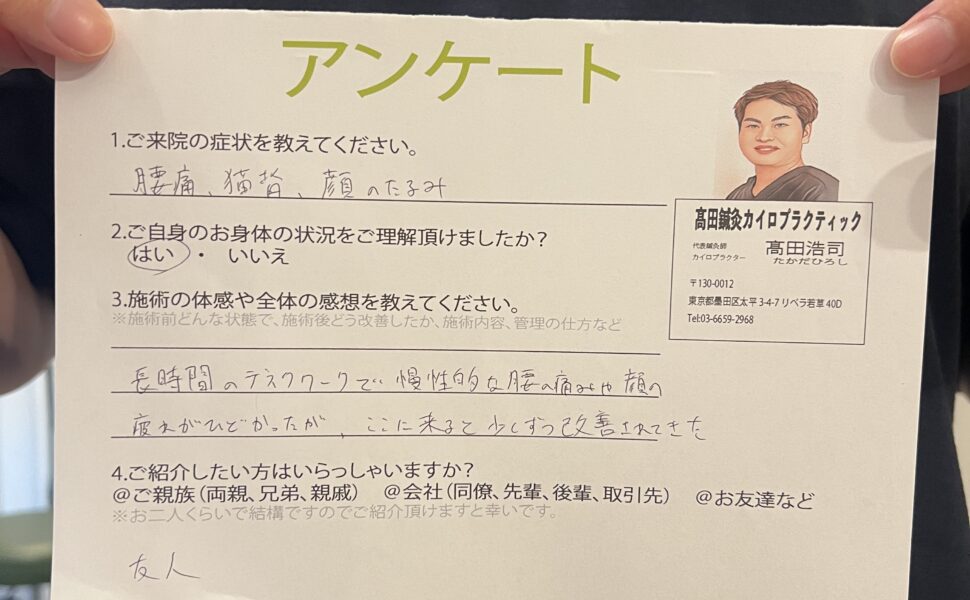 アンケート
1.ご来院の症状を教えてください。
腰痛、猫背、顔のたるみ
2.ご自身のお身体の状況をご理解頂けましたか?
はい・いいえ
3.施術の体感や全体の感想を教えてください。
※施術前どんな状態で、施術後どう改善したか、施術内容、管理の仕方など
長時間のデスクワークで慢性的な腰の痛みや顔の
疲れがひどかったが、ここに来ると少しずつ改善されてきた
4.ご紹介したい方はいらっしゃいますか?
@ご親族(両親、兄弟、親戚) @会社(同僚、先輩、後輩、取引先) @お友達など
※お二人くらいで結構ですのでご紹介頂けますと幸いです。
友人
髙田鍼灸カイロプラクティック
代表鍼灸師
カイロプラクター
髙田浩司
たかだひろし
〒130-0012
東京都墨田区太平3-4-7リベラ若草40D
Tel:03-6659-2968